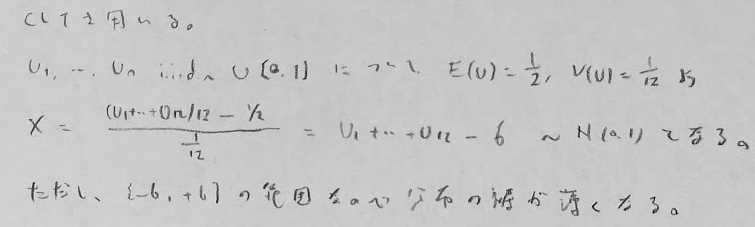 CLTを用いる。
U₁, …, Uₙ i.i.d ~ U[0,1] について E(U)=1/2, V(U)=1/12 より
X = ((U₁+…+U₁₂)/12 - 1/2) / (1/12) = U₁+…+U₁₂ - 6 ~ N(0,1) となる。
ただし、[-6,+6]の範囲なので分布の裾が薄くなる。